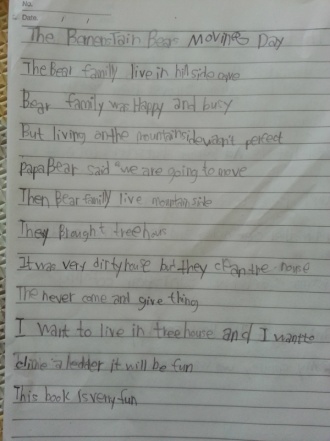 No.
Date / /
The Baren Tain Bear Moving Day
The Bear family live in hillside cave
Bear family was Happy and busy
But living on the mountainside wasn't perfect
papa Bear said "we are going to move
Then Bear family live mountainside
They Brought treehous
It was very dirty house but they clean the house
The never come and give thing
I want to live in treehouse and I want to
clime a ledder it will be fun
This book Is very fun